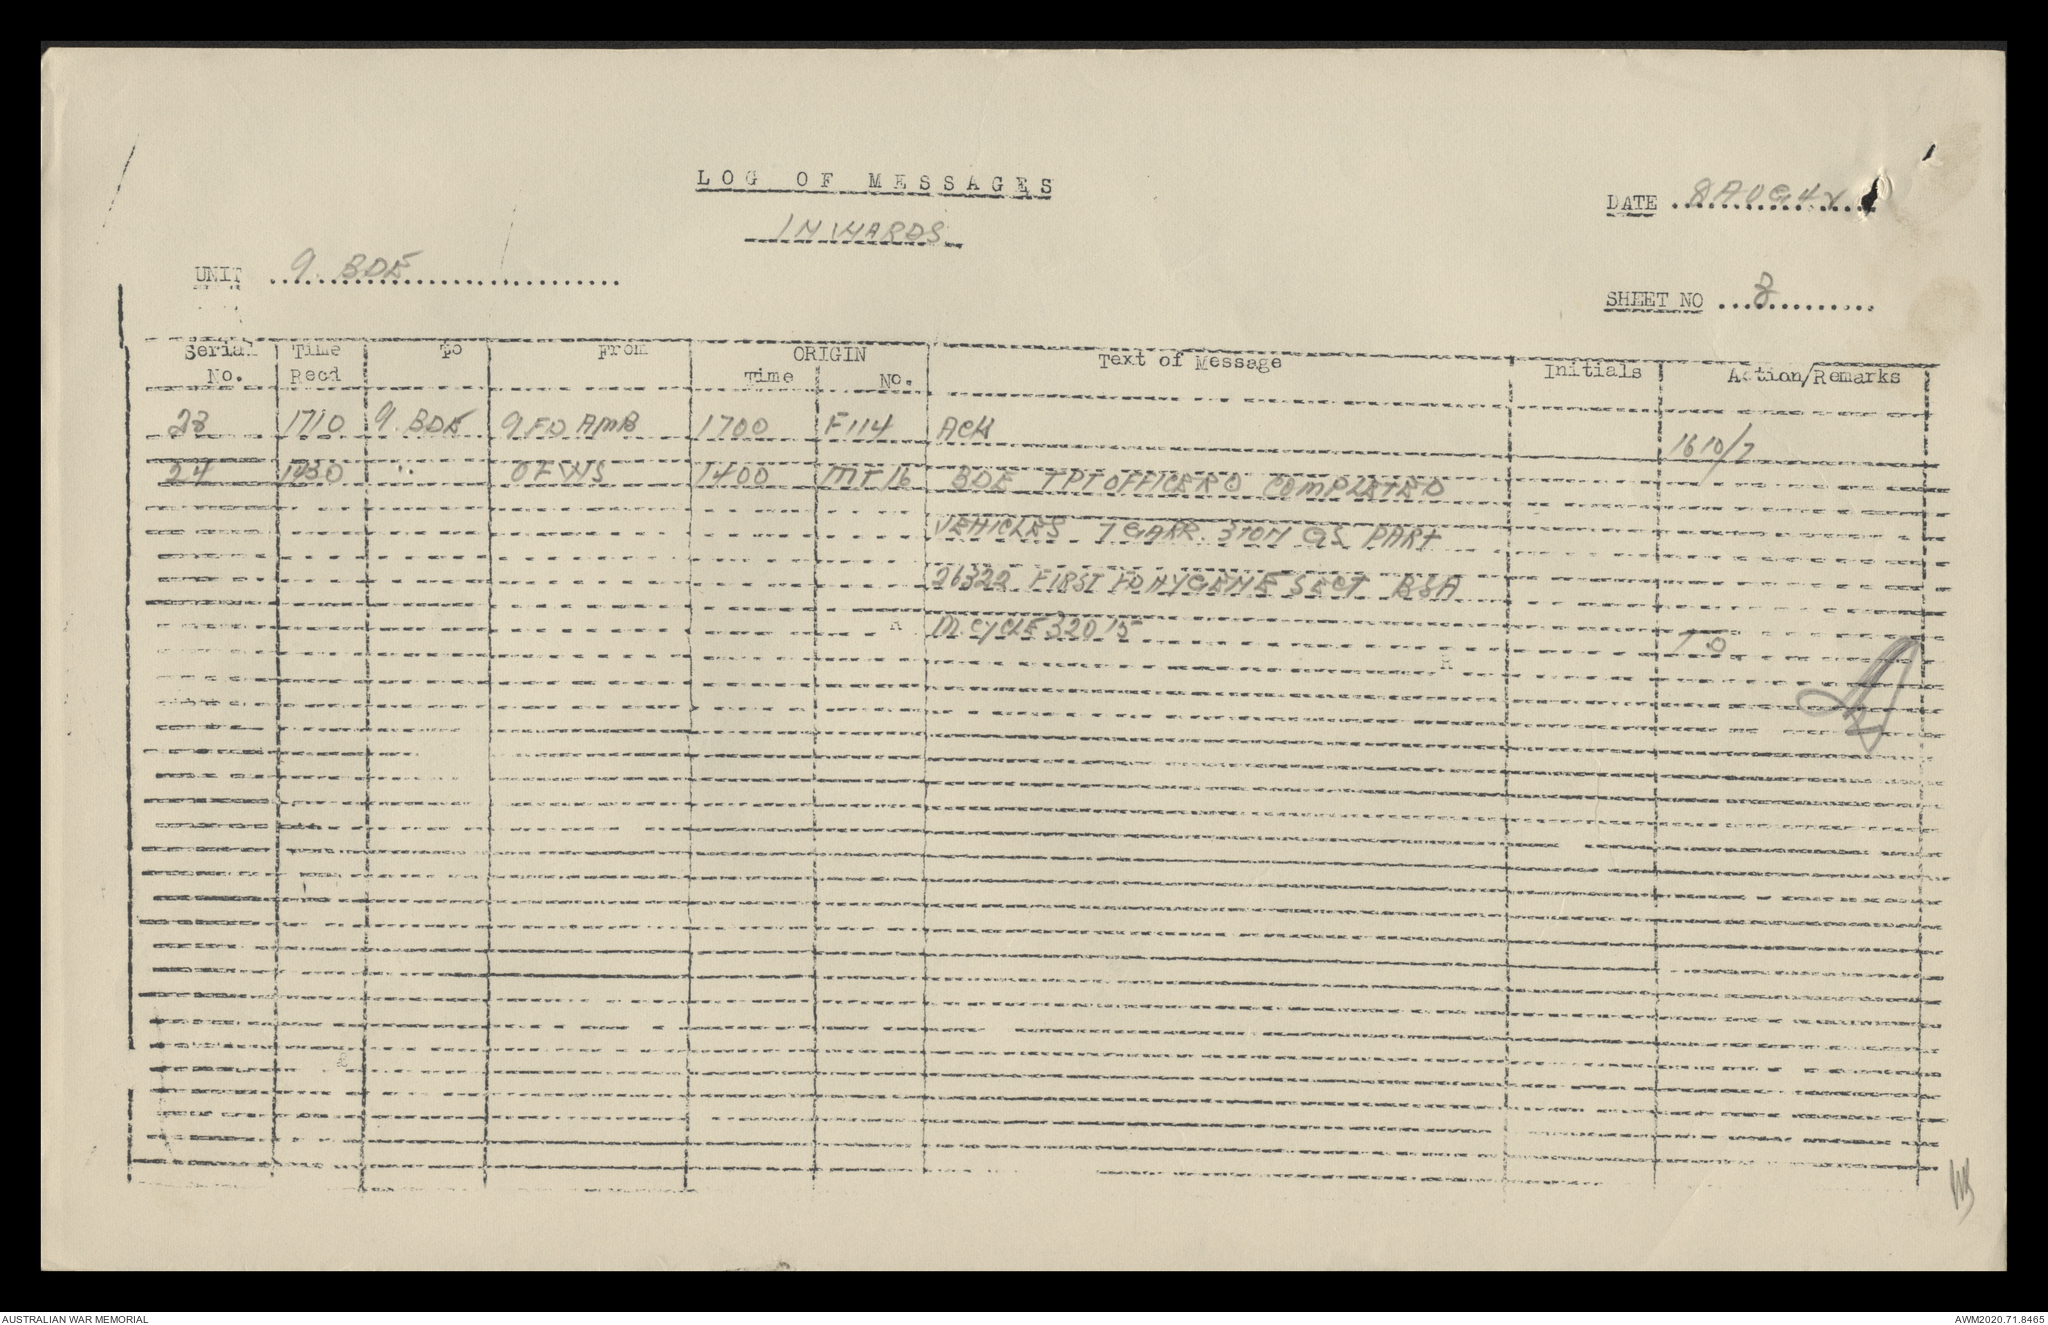 LOG OF MESSAGES
INWARDS
DATE 8 AUG 42
UNIT 9. BDE
SHEET NO 8
Serial No. Time Recd To From ORIGIN Time No. Text of Message Initials Action/Remarks
23 1710 9. BDE 9 FD AMB 1700 F114 ACK 1610/7
24 1430 " OFWS 1400 MT16 BDE TPT OFFICER O COMPLETED
VEHICLES 7 GARR. 3 TON GS PART
26322 FIRST FD HYGENE SECT BSA
M. CYCLE 32015 T O
AUSTRALIAN WAR MEMORIAL
AWM2020.71.8465